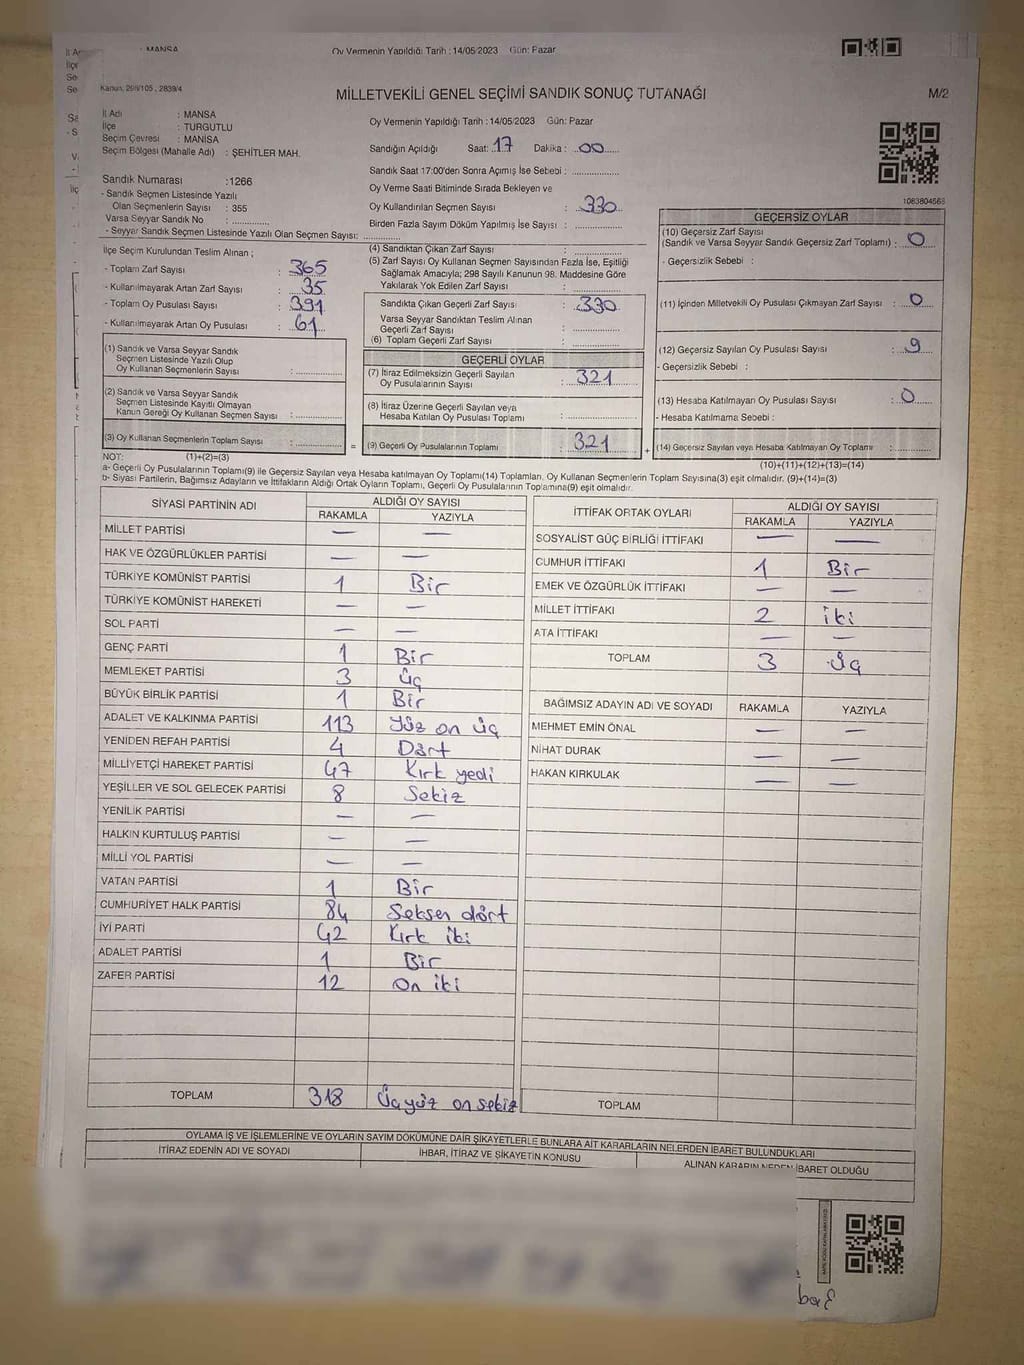 MANSA Oy Vermenin Yapıldığı Tarih : 14/05/2023 Gün: Pazar
Kanun, 298/105 , 2839/4
MİLLETVEKİLİ GENEL SEÇİMİ SANDIK SONUÇ TUTANAĞI
M/2
İl Adı : MANSA
İlçe : TURGUTLU
Seçim Çevresi : MANİSA
Seçim Bölgesi (Mahalle Adı) : ŞEHİTLER MAH.
Sandık Numarası :1266
- Sandık Seçmen Listesinde Yazılı
Olan Seçmenlerin Sayısı : 355
Varsa Seyyar Sandık No :
- Seyyar Sandık Seçmen Listesinde Yazılı Olan Seçmen Sayısı:
Oy Vermenin Yapıldığı Tarih : 14/05/2023 Gün: Pazar
Sandığın Açıldığı Saat: 17 Dakika : 00
Sandık Saat 17:00'den Sonra Açımış İse Sebebi :
Oy Verme Saati Bitiminde Sırada Bekleyen ve
Oy Kullandırılan Seçmen Sayısı : 330
Birden Fazla Sayım Döküm Yapılmış İse Sayısı :
1083804568
İlçe Seçim Kurulundan Teslim Alınan ;
- Toplam Zarf Sayısı : 365
- Kullanılmayarak Artan Zarf Sayısı : 35
- Toplam Oy Pusulası Sayısı : 391
- Kullanılmayarak Artan Oy Pusulası : 61
(1) Sandık ve Varsa Seyyar Sandık
Seçmen Listesinde Yazılı Olup
Oy Kullanan Seçmenlerin Sayısı :
(2) Sandık ve Varsa Seyyar Sandık
Seçmen Listesinde Kayıtlı Olmayan
Kanun Gereği Oy Kullanan Seçmen Sayısı :
(3) Oy Kullanan Seçmenlerin Toplam Sayısı :
(4) Sandıktan Çıkan Zarf Sayısı :
(5) Zarf Sayısı Oy Kullanan Seçmen Sayısından Fazla İse, Eşitliği
Sağlamak Amacıyla; 298 Sayılı Kanunun 98. Maddesine Göre
Yakılarak Yok Edilen Zarf Sayısı :
Sandıkta Çıkan Geçerli Zarf Sayısı : 330
Varsa Seyyar Sandıktan Teslim Alınan
Geçerli Zarf Sayısı :
(6) Toplam Geçerli Zarf Sayısı :
GEÇERLİ OYLAR
(7) İtiraz Edilmeksizin Geçerli Sayılan
Oy Pusulalarının Sayısı : 321
(8) İtiraz Üzerine Geçerli Sayılan veya
Hesaba Katılan Oy Pusulası Toplamı :
= (9) Geçerli Oy Pusulalarının Toplamı : 321 +
GEÇERSİZ OYLAR
(10) Geçersiz Zarf Sayısı
(Sandık ve Varsa Seyyar Sandık Geçersiz Zarf Toplamı) : 0
- Geçersizlik Sebebi :
(11) İçinden Milletvekili Oy Pusulası Çıkmayan Zarf Sayısı : 0
(12) Geçersiz Sayılan Oy Pusulası Sayısı : 9
- Geçersizlik Sebebi :
(13) Hesaba Katılmayan Oy Pusulası Sayısı : 0
- Hesaba Katılmama Sebebi :
(14) Geçersiz Sayılan veya Hesaba Katılmayan Oy Toplamı :
NOT: (1)+(2)=(3) (10)+(11)+(12)+(13)=(14)
a- Geçerli Oy Pusulalarının Toplamı(9) ile Geçersiz Sayılan veya Hesaba katılmayan Oy Toplamı(14) Toplamları, Oy Kullanan Seçmenlerin Toplam Sayısına(3) eşit olmalıdır. (9)+(14)=(3)
b- Siyasi Partilerin, Bağımsız Adayların ve İttifakların Aldığı Ortak Oyların Toplamı, Geçerli Oy Pusulalarının Toplamına(9) eşit olmalıdır.
SİYASİ PARTİNİN ADI ALDIĞI OY SAYISI
RAKAMLA YAZIYLA
MİLLET PARTİSİ — —
HAK VE ÖZGÜRLÜKLER PARTİSİ — —
TÜRKİYE KOMÜNİST PARTİSİ 1 Bir
TÜRKİYE KOMÜNİST HAREKETİ — —
SOL PARTİ — —
GENÇ PARTİ 1 Bir
MEMLEKET PARTİSİ 3 üç
BÜYÜK BİRLİK PARTİSİ 1 Bir
ADALET VE KALKINMA PARTİSİ 113 Yüz on üç
YENİDEN REFAH PARTİSİ 4 Dört
MİLLİYETÇİ HAREKET PARTİSİ 47 Kırk yedi
YEŞİLLER VE SOL GELECEK PARTİSİ 8 Sekiz
YENİLİK PARTİSİ — —
HALKIN KURTULUŞ PARTİSİ — —
MİLLİ YOL PARTİSİ — —
VATAN PARTİSİ 1 Bir
CUMHURİYET HALK PARTİSİ 84 Seksen dört
İYİ PARTİ 42 Kırk iki
ADALET PARTİSİ 1 Bir
ZAFER PARTİSİ 12 On iki
TOPLAM 318 Üçyüz on sekiz
İTTİFAK ORTAK OYLARI ALDIĞI OY SAYISI
RAKAMLA YAZIYLA
SOSYALİST GÜÇ BİRLİĞİ İTTİFAKI — —
CUMHUR İTTİFAKI 1 Bir
EMEK VE ÖZGÜRLÜK İTTİFAKI — —
MİLLET İTTİFAKI 2 iki
ATA İTTİFAKI — —
TOPLAM 3 Üç
BAĞIMSIZ ADAYIN ADI VE SOYADI RAKAMLA YAZIYLA
MEHMET EMİN ÖNAL — —
NİHAT DURAK — —
HAKAN KIRKULAK — —
TOPLAM
OYLAMA İŞ VE İŞLEMLERİNE VE OYLARIN SAYIM DÖKÜMÜNE DAİR ŞİKAYETLERLE BUNLARA AİT KARARLARIN NELERDEN İBARET BULUNDUKLARI
İTİRAZ EDENİN ADI VE SOYADI İHBAR, İTİRAZ VE ŞİKAYETİN KONUSU ALINAN KARARIN NEDEN İBARET OLDUĞU